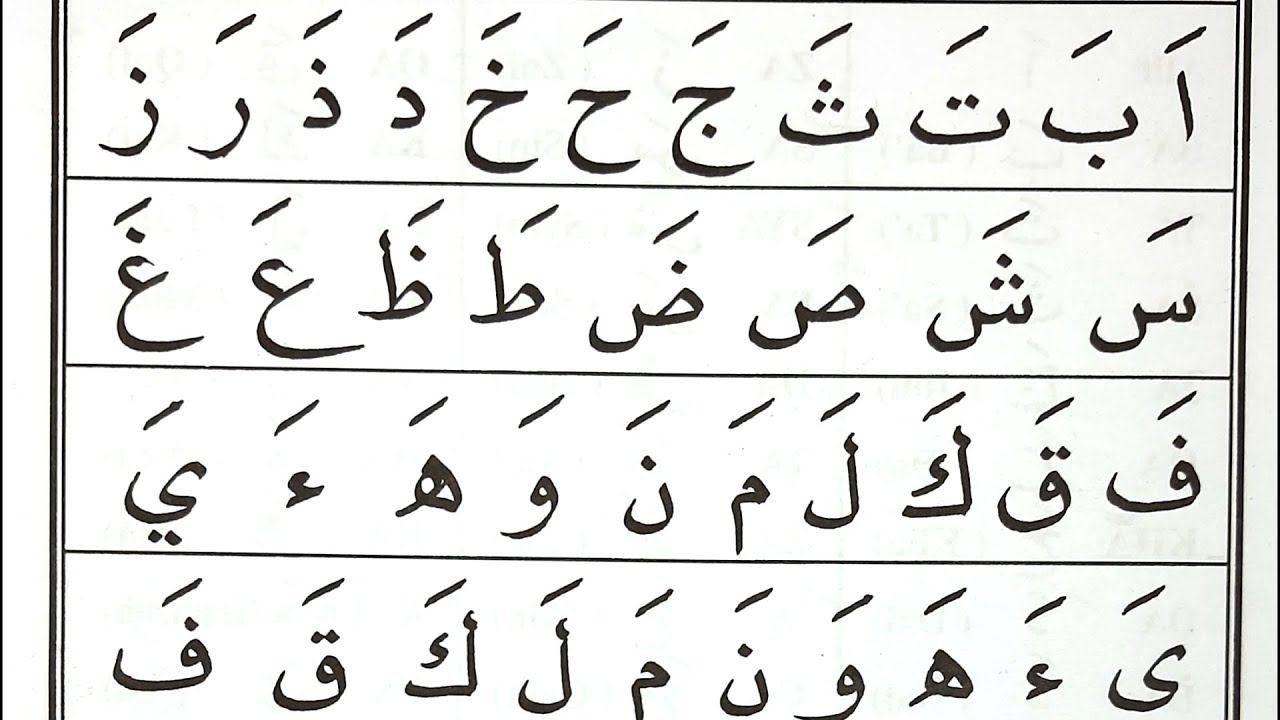 اَ بَ تَ ثَ جَ حَ خَ دَ ذَ رَ زَ
سَ شَ صَ ضَ طَ ظَ عَ غَ
فَ قَ كَ لَ مَ نَ وَ هَ ءَ يَ
ىَ ءَ هَ وَ نَ مَ لَ كَ قَ فَ